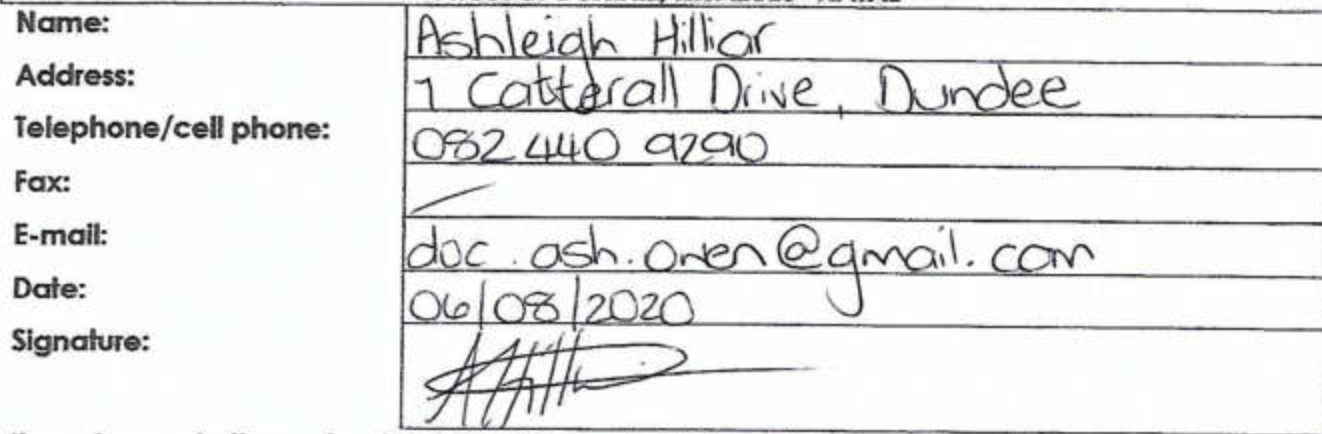 Name: Ashleigh Hilliar
Address: 7 Catterall Drive, Dundee
Telephone/cell phone: 082 440 9290
Fax: /
E-mail: doc.ash.owen@gmail.com
Date: 06/08/2020
Signature: